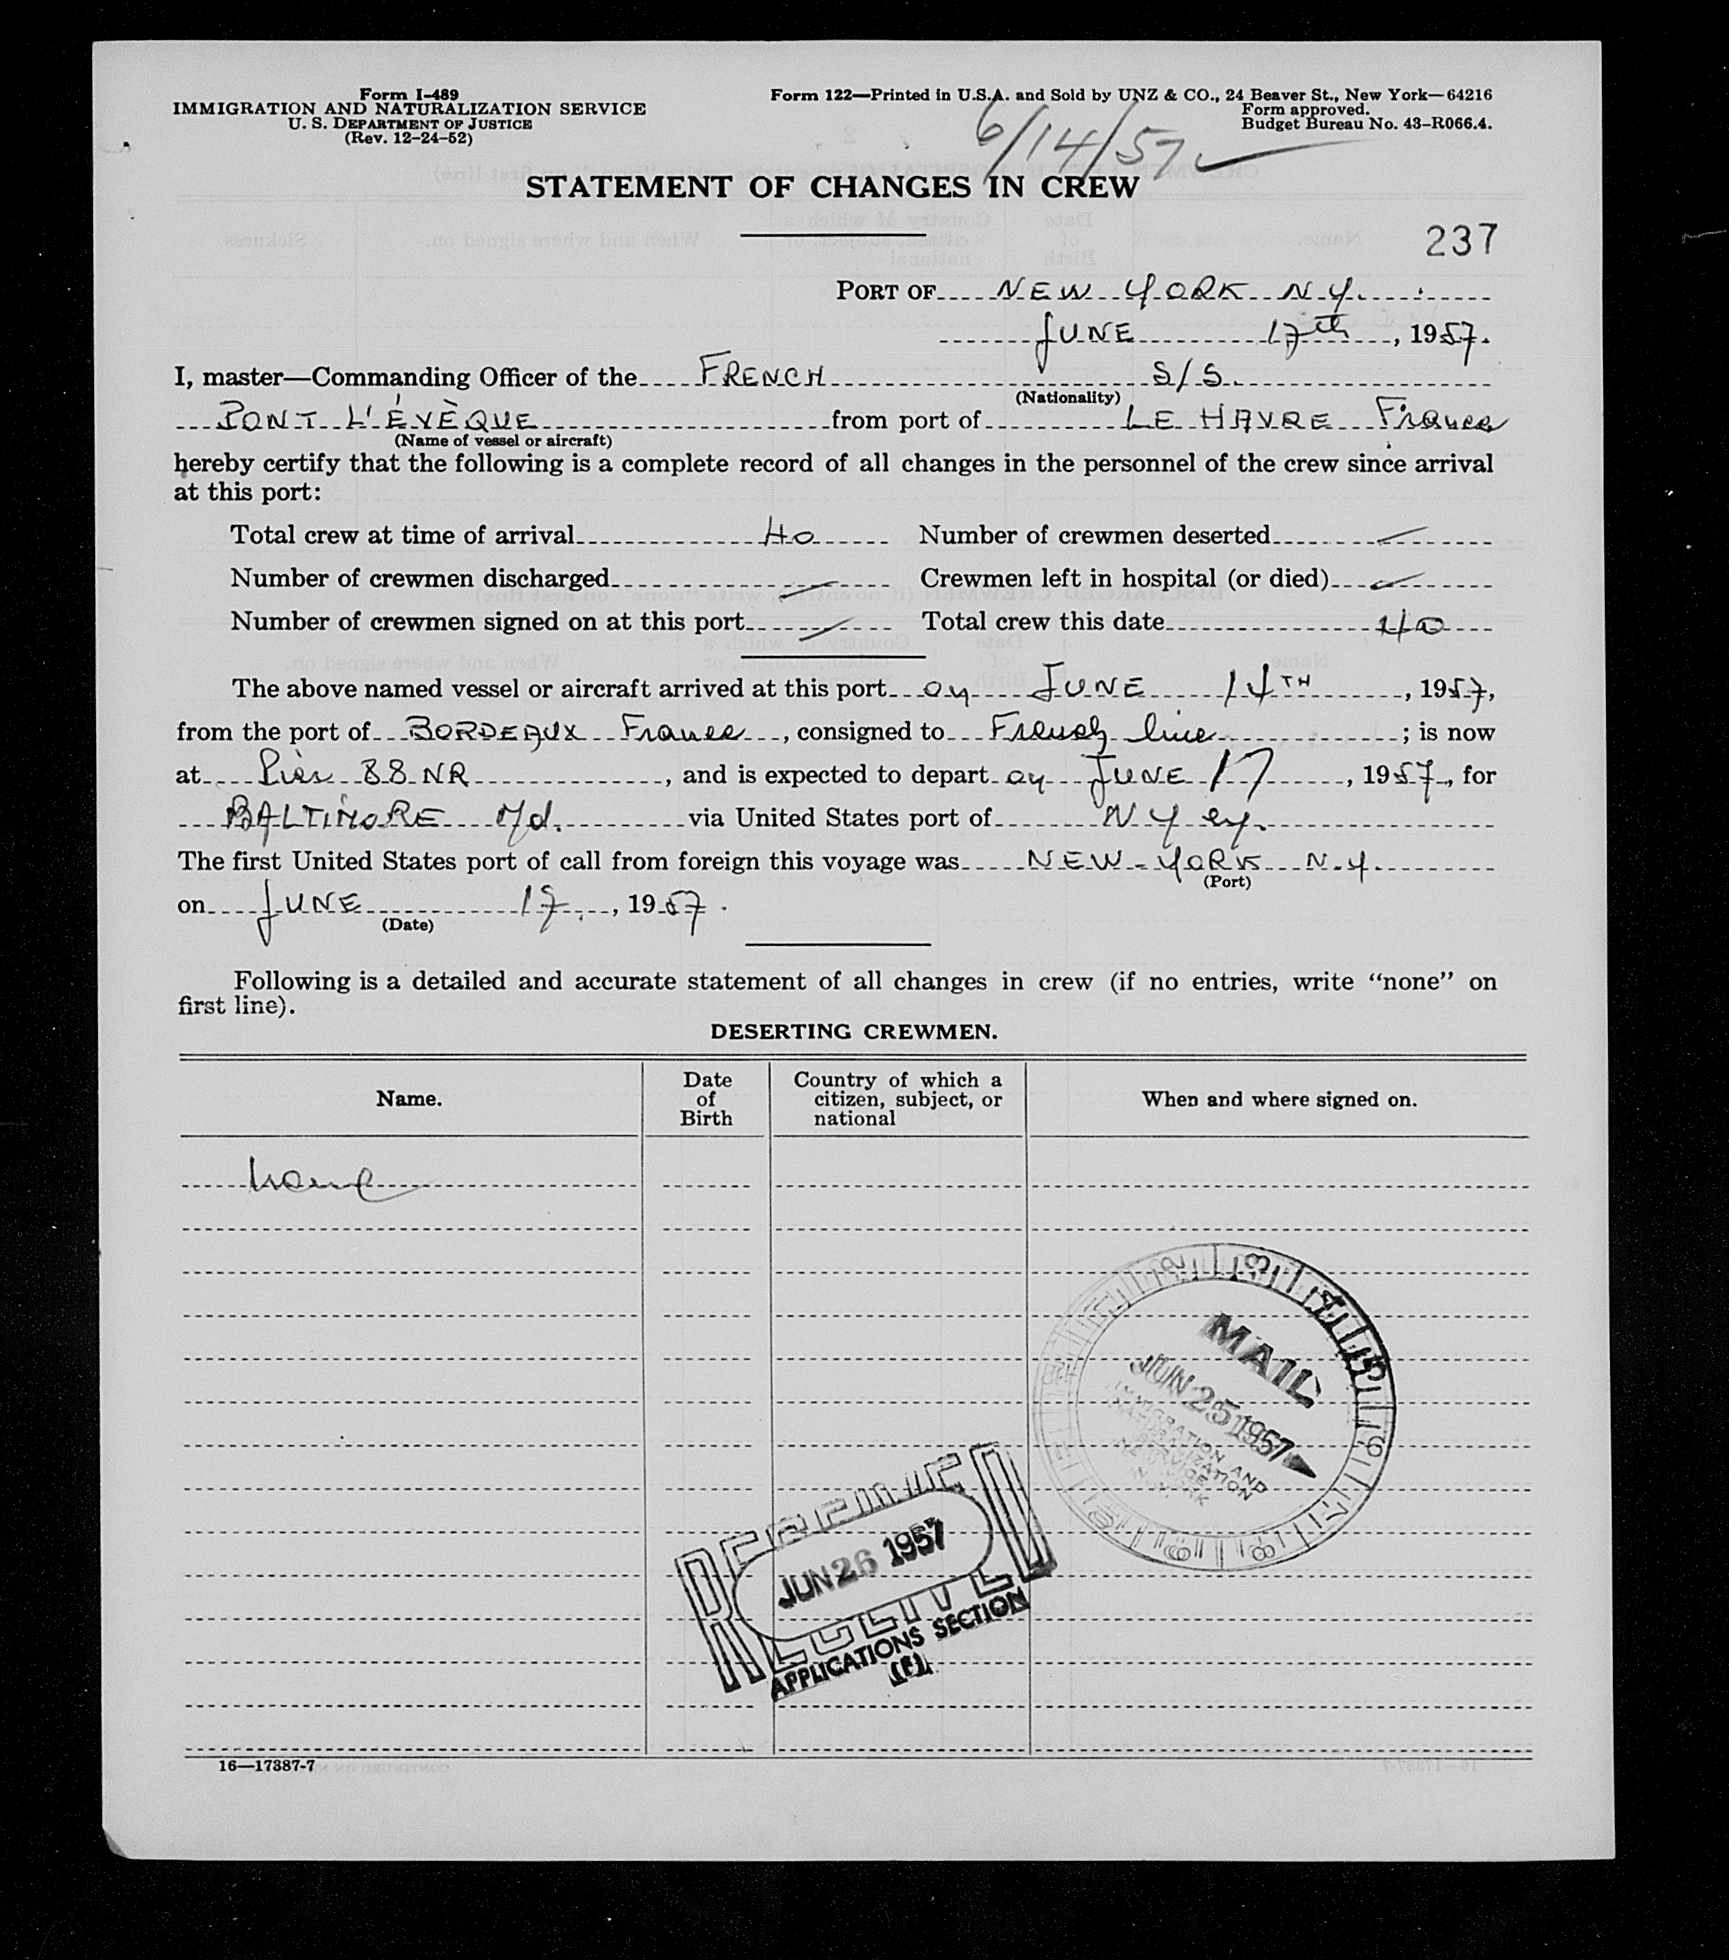 Form I-489
IMMIGRATION AND NATURALIZATION SERVICE
U. S. DEPARTMENT OF JUSTICE
(Rev. 12-24-52)
Form 122—Printed in U.S.A. and Sold by UNZ & CO., 24 Beaver St., New York—64216
Form approved.
Budget Bureau No. 43-R066.4.
6/14/57
STATEMENT OF CHANGES IN CREW
237
PORT OF NEW YORK N.Y.
JUNE 17th, 1957.
I, master—Commanding Officer of the FRENCH S/S.
(Nationality)
PONT L'ÉVÈQUE from port of LE HAVRE France
(Name of vessel or aircraft)
hereby certify that the following is a complete record of all changes in the personnel of the crew since arrival
at this port:
Total crew at time of arrival 40 Number of crewmen deserted
Number of crewmen discharged Crewmen left in hospital (or died)
Number of crewmen signed on at this port Total crew this date 40
The above named vessel or aircraft arrived at this port on JUNE 14TH, 1957,
from the port of BORDEAUX France, consigned to French line; is now
at Pier 88 NR, and is expected to depart on JUNE 17, 1957, for
BALTIMORE Md. via United States port of N Y
The first United States port of call from foreign this voyage was NEW-YORK N.Y.
(Port)
on JUNE 17, 1957.
(Date)
Following is a detailed and accurate statement of all changes in crew (if no entries, write "none" on
first line).
DESERTING CREWMEN.
Name.
Date of Birth
Country of which a citizen, subject, or national
When and where signed on.
none
MAIL
JUN 25 1957
IMMIGRATION AND
NATURALIZATION
SERVICE
NEW YORK
N.Y.
RECEIVED
JUN 26 1957
APPLICATIONS SECTION
16—17387-7